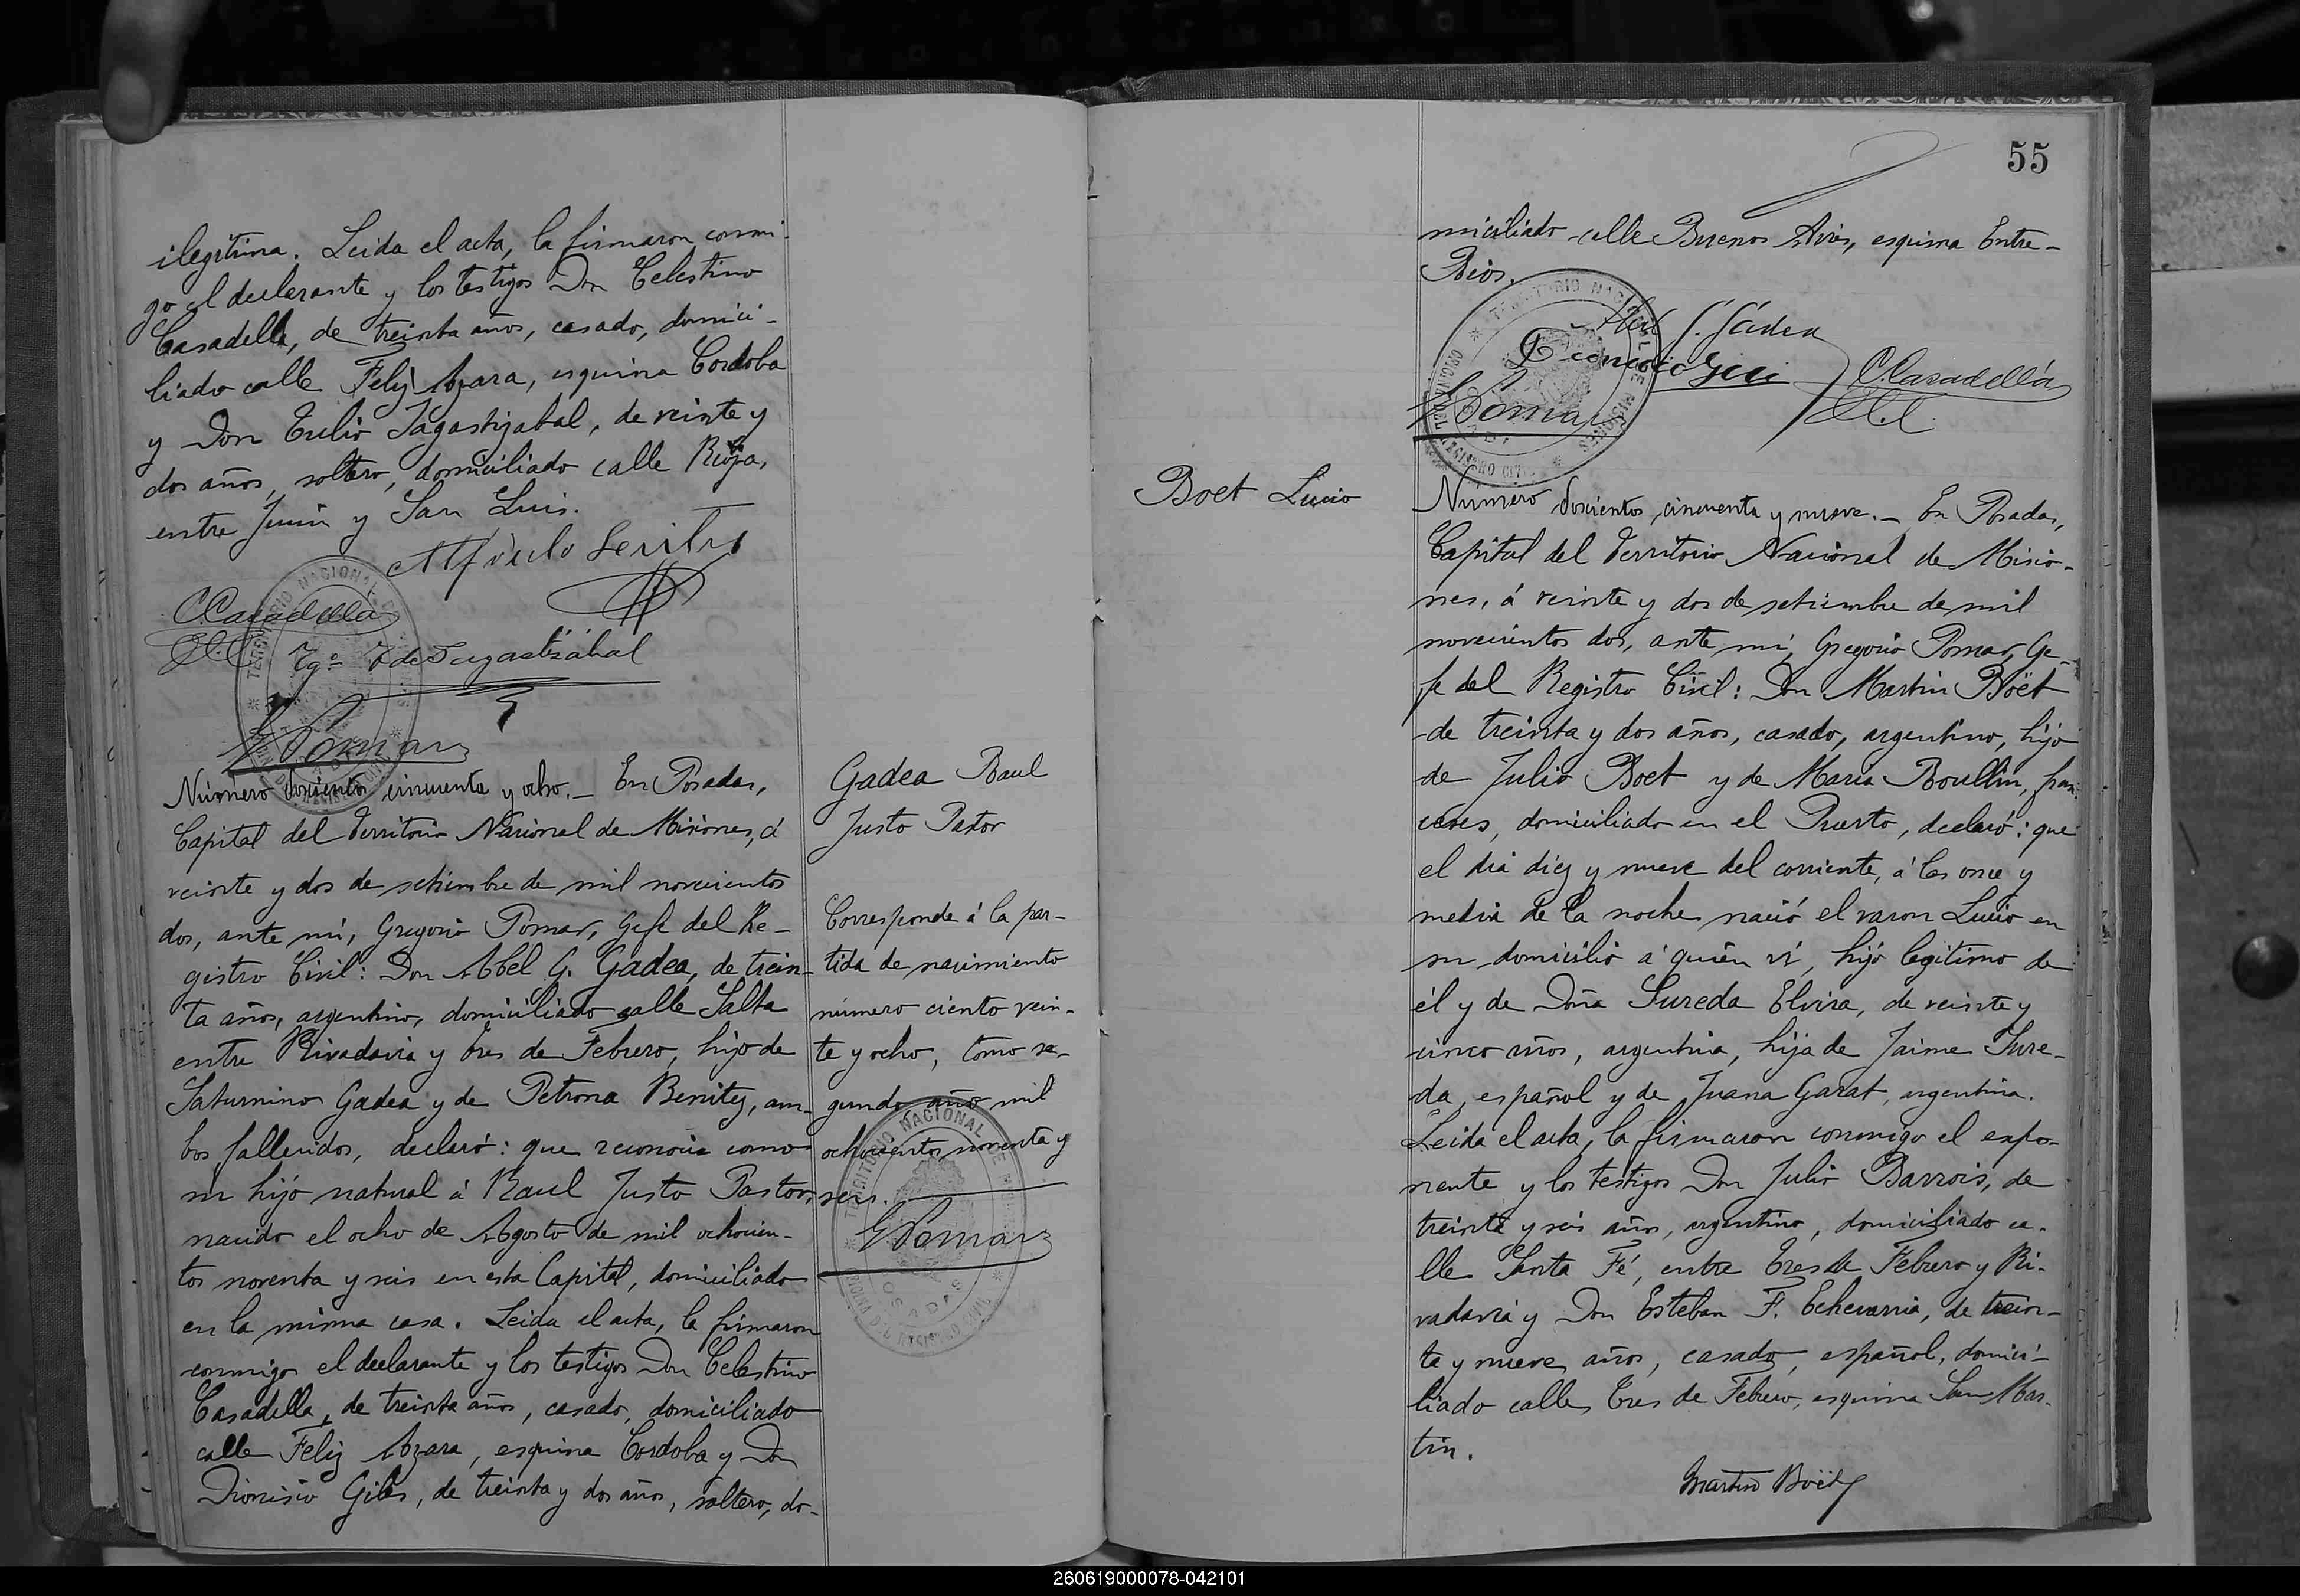 ilegítima. Leida el acta, la firmaron conmi-
go el declarante y los testigos Don Celestino
Casadella, de treinta años, casado, domici-
liado calle Feliz Azara, esquina Cordoba
y Don Tulio Sagastizabal, de veinte y
dos años, soltero, domiciliado calle Rioja,
entre Junin y San Luis.
C. Casadellá
G Pomar
Número doscientos cincuenta y ocho. _ En Posadas,
Capital del Territorio Nacional de Misiones, á
veinte y dos de setiembre de mil novecientos
dos, ante mí, Gregorio Pomar, Gefe del Re-
gistro Civil: Don Abel G. Gadea, de trein-
ta años, argentino, domiciliado calle Salta
entre Rivadavia y Tres de Febrero, hijo de
Saturnino Gadea y de Petrona Benitez, am-
bos fallecidos, declaró: que reconocia como
su hijo natural á Raul Justo Pastor,
nacido el ocho de Agosto de mil ochocien-
tos noventa y seis en esta Capital, domiciliado
en la misma casa. Leida el acta, la firmaron
conmigo el declarante y los testigos Don Celestino
Casadella, de treinta años, casado, domiciliado
calle Feliz Azara, esquina Cordoba y Don
Dionisio Giles, de treinta y dos años, soltero, do-
Gadea Raul
Justo Pastor
Corresponde á la par-
tida de nacimiento
número ciento vein-
te y ocho, tomo se-
gundo año mil
ochocientos noventa y
seis.
TERRITORIO NACIONAL DE MISIONES
POSADAS
OFICINA DEL REGISTRO CIVIL
G Pomar
55
miciliado calle Buenos Aires, esquina Entre-
Rios.
Abel G. Gadea
C. Casadellá
G Pomar
Boet Lucio
Número doscientos cincuenta y nueve. _ En Posadas,
Capital del Territorio Nacional de Misio-
nes, á veinte y dos de setiembre de mil
novecientos dos, ante mí, Gregorio Pomar, Ge-
fe del Registro Civil: Don Martin Boët
de treinta y dos años, casado, argentino, hijo
de Julio Boet y de Maria Boullin, fran-
ceses, domiciliado en el Puerto, declaró: que
el dia diez y nueve del corriente, á las once y
media de la noche nació el varon Lucio en
su domicilio á quién ví, hijo legitimo de
él y de Doña Sureda Elvira, de veinte y
cinco años, argentina, hija de Jaime Sure-
da, español y de Juana Garat, argentina.
Leida el acta, la firmaron conmigo el expo-
nente y los testigos Don Julio Barrois, de
treinta y seis años, argentino, domiciliado ca-
lle Santa Fé, entre Tres de Febrero y Ri-
vadavia y Don Esteban F. Echevarria, de trein-
ta y nueve años, casado, español, domici-
liado calle Tres de Febrero, esquina San Mar-
tin.
Martin Boët
260619000078-042101